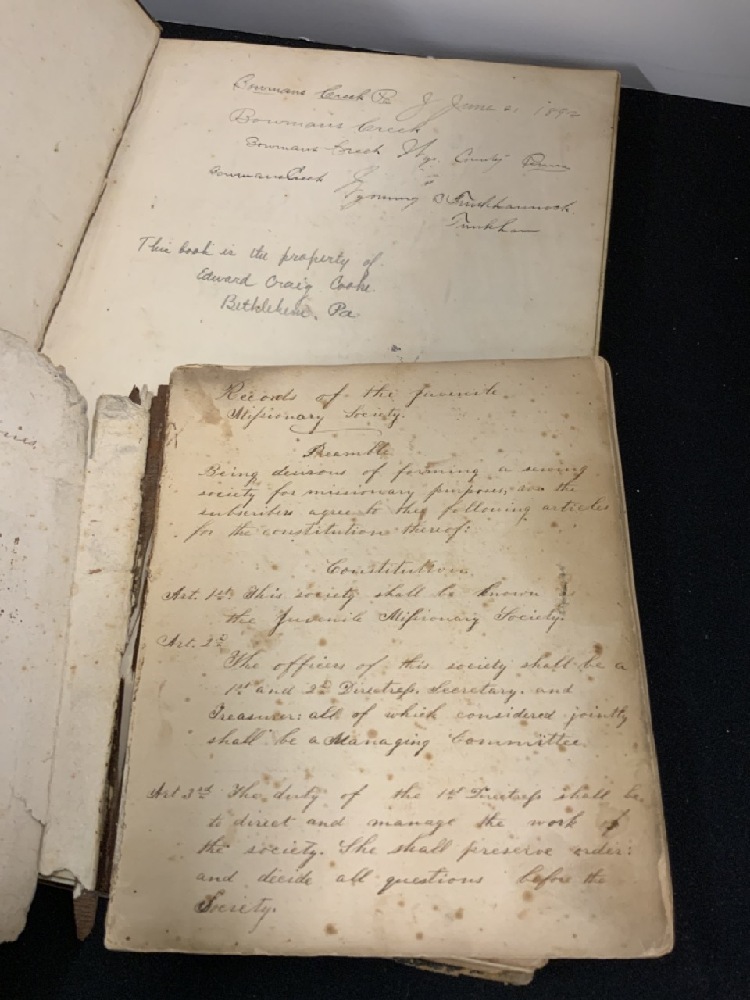 Bowmans Creek Pa J June 2, 1892
Bowmans Creek
Bowmans Creek Wy. County Penna
Bowmans Creek
Wyoming Co Tunkhannock
Tunkhan
This book is the property of
Edward Craig Cooke
Bethlehem, Pa
Records of the juvenile
Missionary Society.
Preamble
Being desirous of forming a sewing
society for missionary purposes, we the
subscribers agree to the following articles
for the constitution thereof:
Constitution
Art. 1st. This society shall be known as
the Juvenile Missionary Society.
Art. 2d
The officers of this society shall be a
1st and 2d Directress, Secretary, and
Treasurer: all of which considered jointly
shall be a Managing Committee.
Art 3rd The duty of the 1st Directress shall be
to direct and manage the work of
the society. She shall preserve order:
and decide all questions before the
Society.